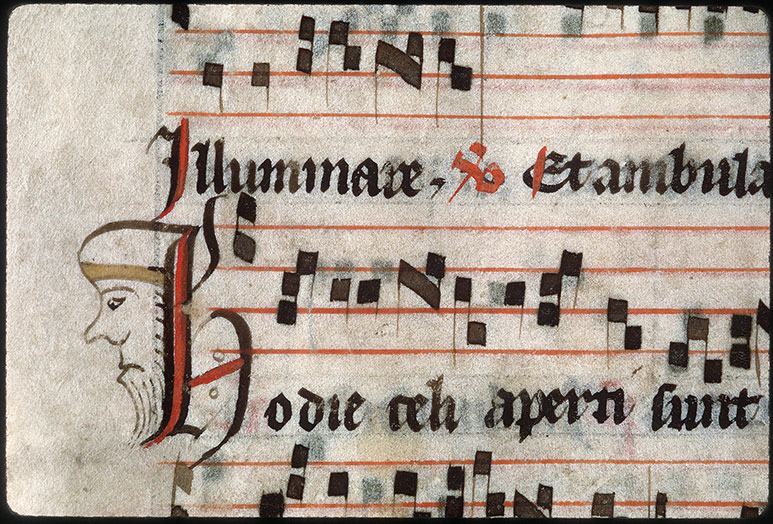 Illuminare, ℣ Et ambula
Hodie celi aperti sunt